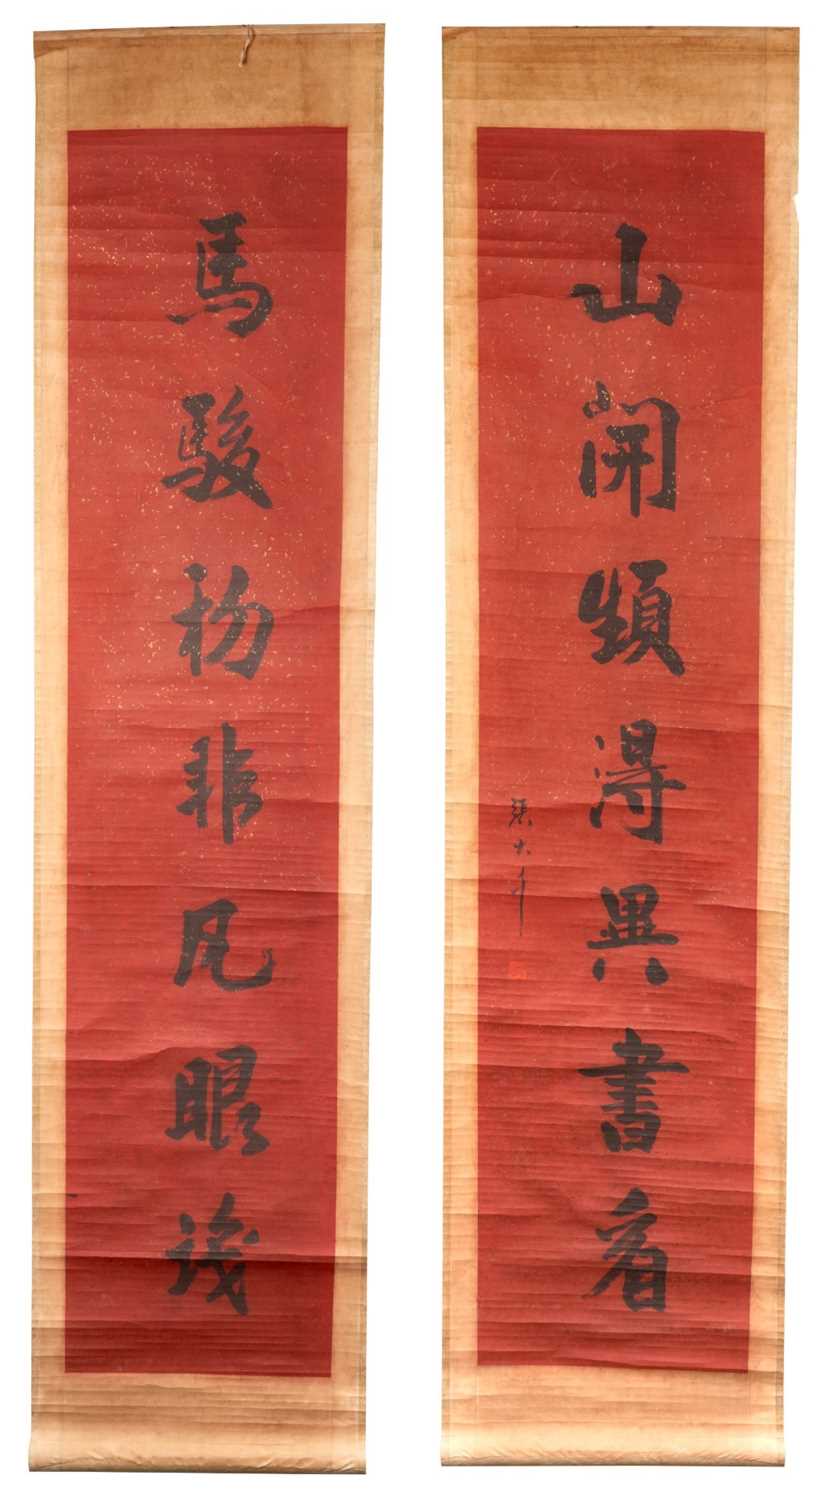 馬駿初非凡眼識
山開頻得異書看
張大千